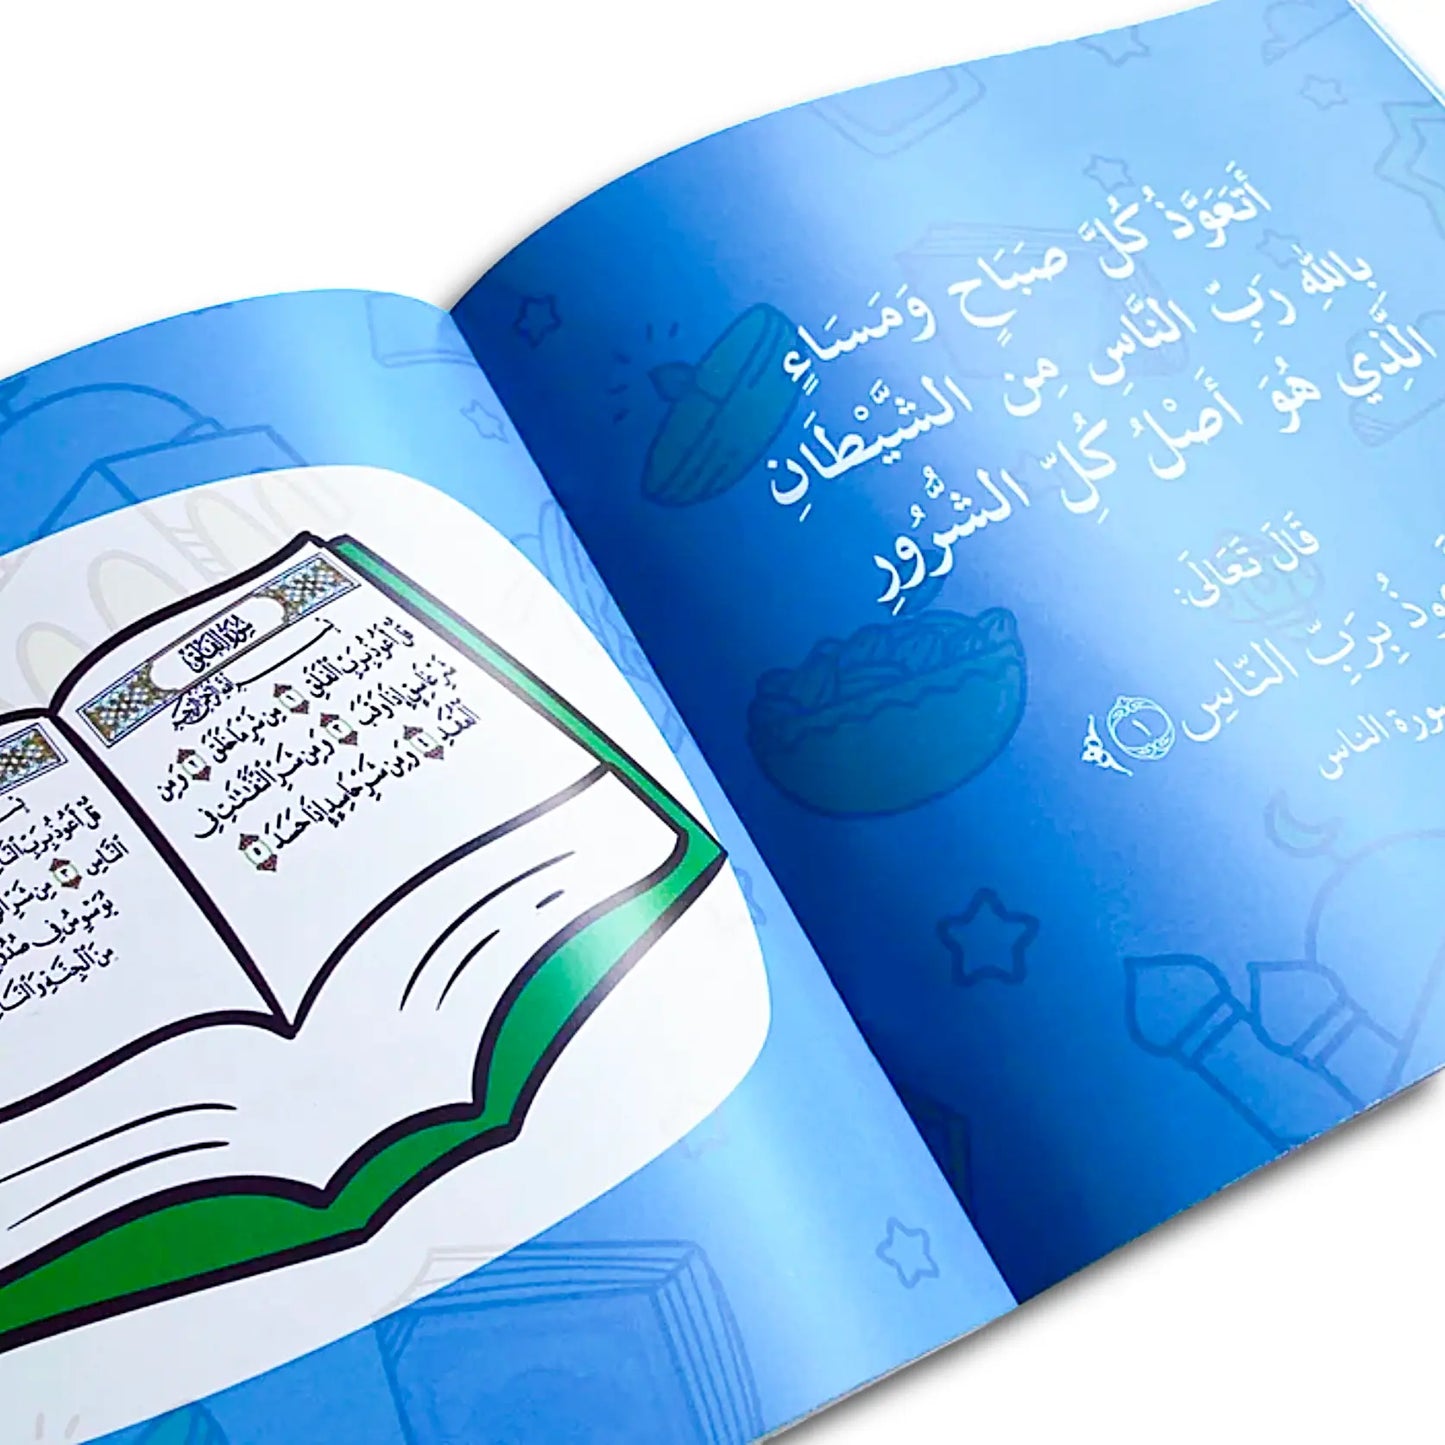 أَتَعَوَّذُ كُلَّ صَبَاحٍ وَمَسَاءٍ
بِاللهِ رَبِّ النَّاسِ مِن الشَّيْطَانِ
الَّذِي هُوَ أَصْلُ كُلِّ الشُّرُورِ
قَالَ تَعَالَى:
بِرَبِّ النَّاسِ ١
سورة الناس
سورة الفلق
بسم الله الرحمن الرحيم
قُلْ أَعُوذُ بِرَبِّ ٱلْفَلَقِ ١ مِن شَرِّ مَا خَلَقَ ٢ وَمِن
شَرِّ غَاسِقٍ إِذَا وَقَبَ ٣ وَمِن شَرِّ ٱلنَّفَّٰثَٰتِ فِى
ٱلْعُقَدِ ٤ وَمِن شَرِّ حَاسِدٍ إِذَا حَسَدَ ٥
قُلْ أَعُوذُ بِرَبِّ
ٱلنَّاسِ ٣ مِن شَرِّ
يُوَسْوِسُ فِى
مِنَ ٱلْجِنَّةِ